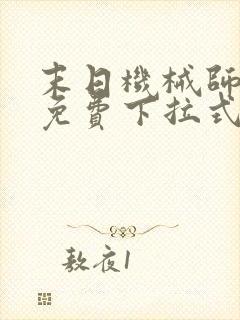 末日機械師
免費下拉式
敖夜1